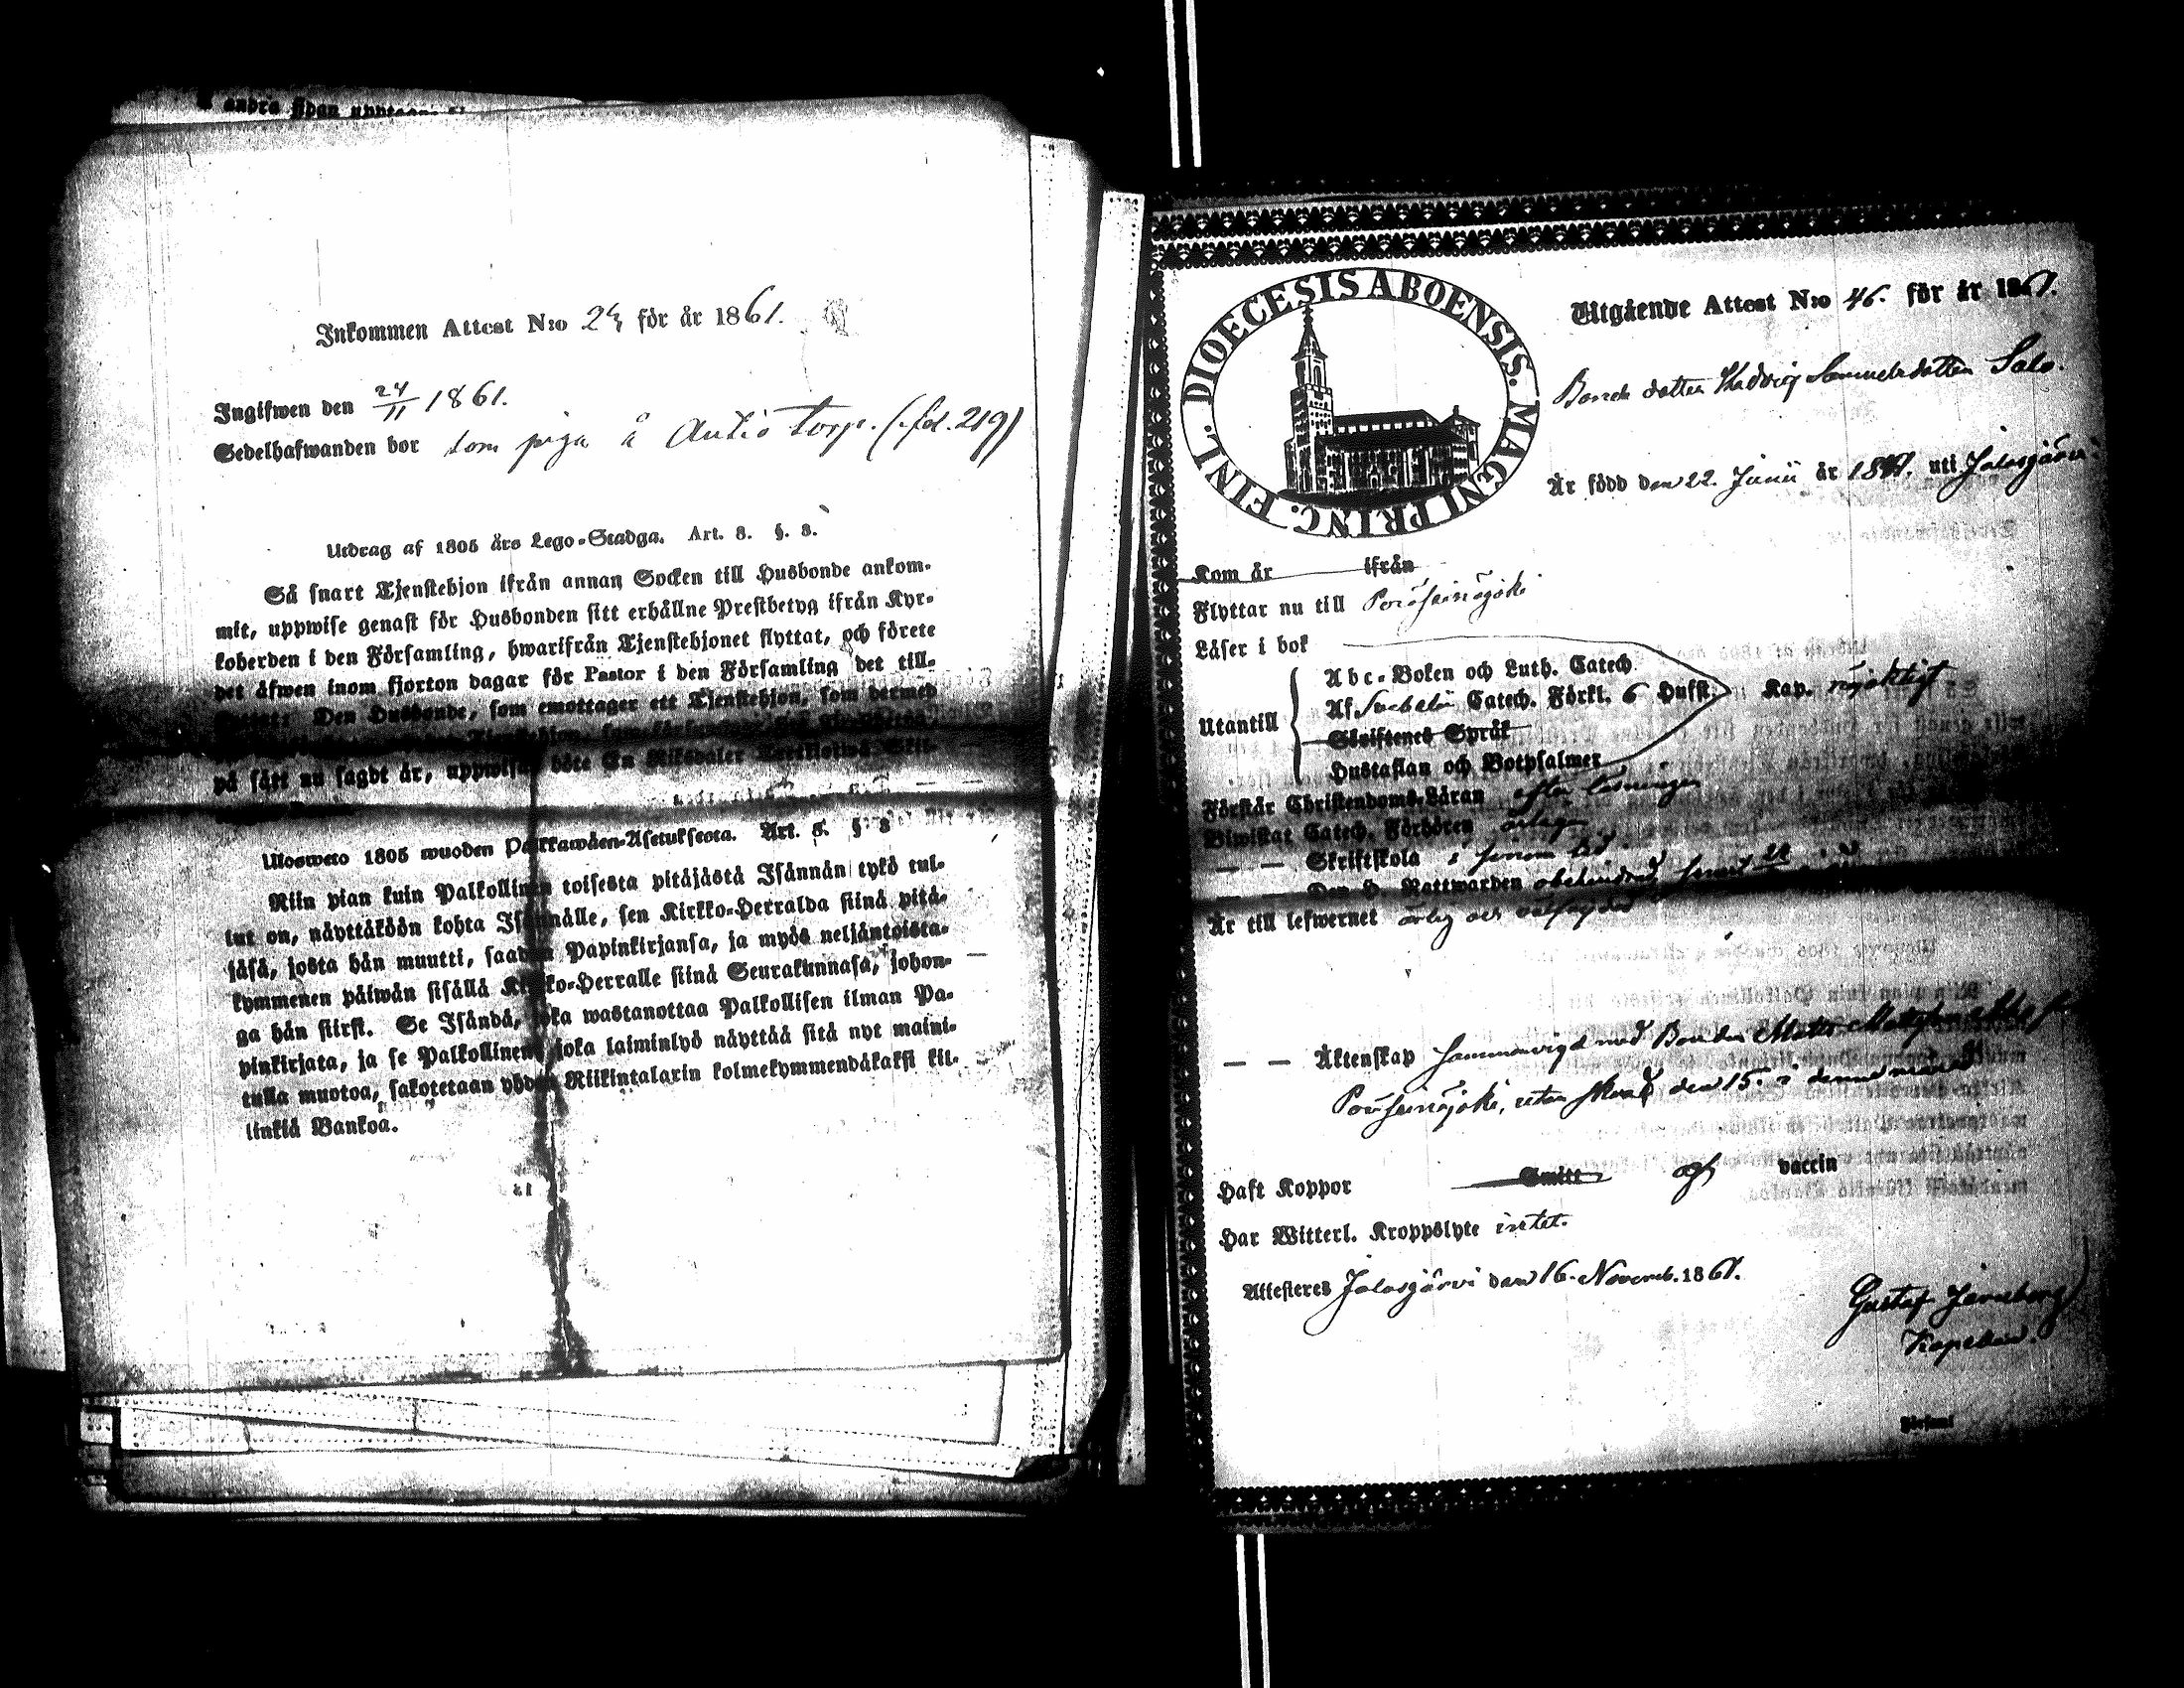 andra sidan
Inkommen Attest N:o 24 för år 1861.
Ingifwen den 24/11 1861.
Sedelhafwanden bor som piga å Antio torp. (fol. 219)
Utdrag af 1805 års Lego-Stadga. Art. 8. §. 3.
Så snart Tjenstehjon ifrån annan Socken till Husbonde ankom-
mit, uppwise genast för Husbonden sitt erhållne Prestbetyg ifrån Kyr-
koherden i den Församling, hwarifrån Tjenstehjonet flyttat, och förete
det äfwen inom fjorton dagar för Pastor i den Församling det till-
Den Husbonde, som emottager ett Tjenstehjon, som dermed
på sätt nu sagdt är, uppwisa, böte En Riksdaler
Ulosweto 1805 wuoden Palkkawäen-Asetuksesta. Art. 8. § 3
Niin pian kuin Palkollinen toisesta pitäjästä Isännän tykö tul-
lut on, näyttäköön kohta Isännälle, sen Kirkko-Herralda siinä pitä-
jäsä, josta hän muutti, saadun Papinkirjansa, ja myös neljäntoista-
kymmenen päiwän sisällä Kirkko-Herralle siinä Seurakunnasa, johon-
ga hän siirst. Se Isändä, joka wastanottaa Palkollisen ilman Pa-
pinkirjata, ja se Palkollinen, joka laiminlyö näyttää sitä nyt maini-
tulla muotoa, sakotetaan yöden Riikintalarin kolmekymmendäkaksi kil-
linkiä Bankoa.
DIOECESIS ABOENSIS. MAGNI PRINC. FINL.
Utgående Attest N:o 46. för år 1861.
Bonde dotter Hedvig Samuelsdotter Salo.
Är född den 22. Junii år 1841. uti Jalasjärvi.
Kom år ifrån
Flyttar nu till Poröseinäjoki
Läser i bok
Utantill
Abc-Boken och Luth. Catech
Af Svebelii Catech. Förkl. 6 Hufst. Kap. nöjaktigt
Skriftenes Språk
Hustaflan och Botpsalmer
Förstår Christendoms-Läran efter läsningen
Biwistat Catech. Förhören årligen
— — Skriftskola i sinom tid.
— — Den H. Nattwarden obehindrad senast
Är till lefwernet ärlig och
— — Äktenskap sammanvigd med Bonden Matts Mattsson
Poröseinäjoki, den 15. i denne månad
Haft Koppor Smitt och vaccin
Har Witterl. Kroppslyte intet.
Attesteres Jalasjärvi den 16. Novemb. 1861.
Gustaf
Kapellan.